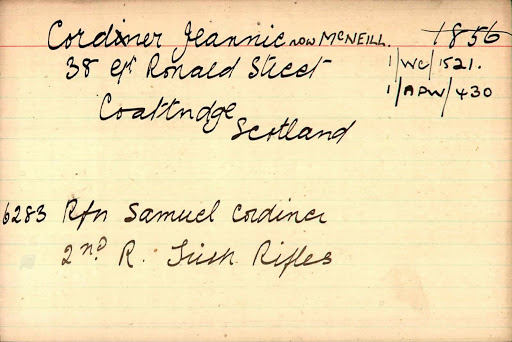 Cordiner Jeannie now McNEILL. 1856
38 Gt Ronald Street 1/WC/1521.
Coatbridge 1/APW/430
Scotland
6283 Rfn Samuel Cordiner
2nd R. Irish Rifles